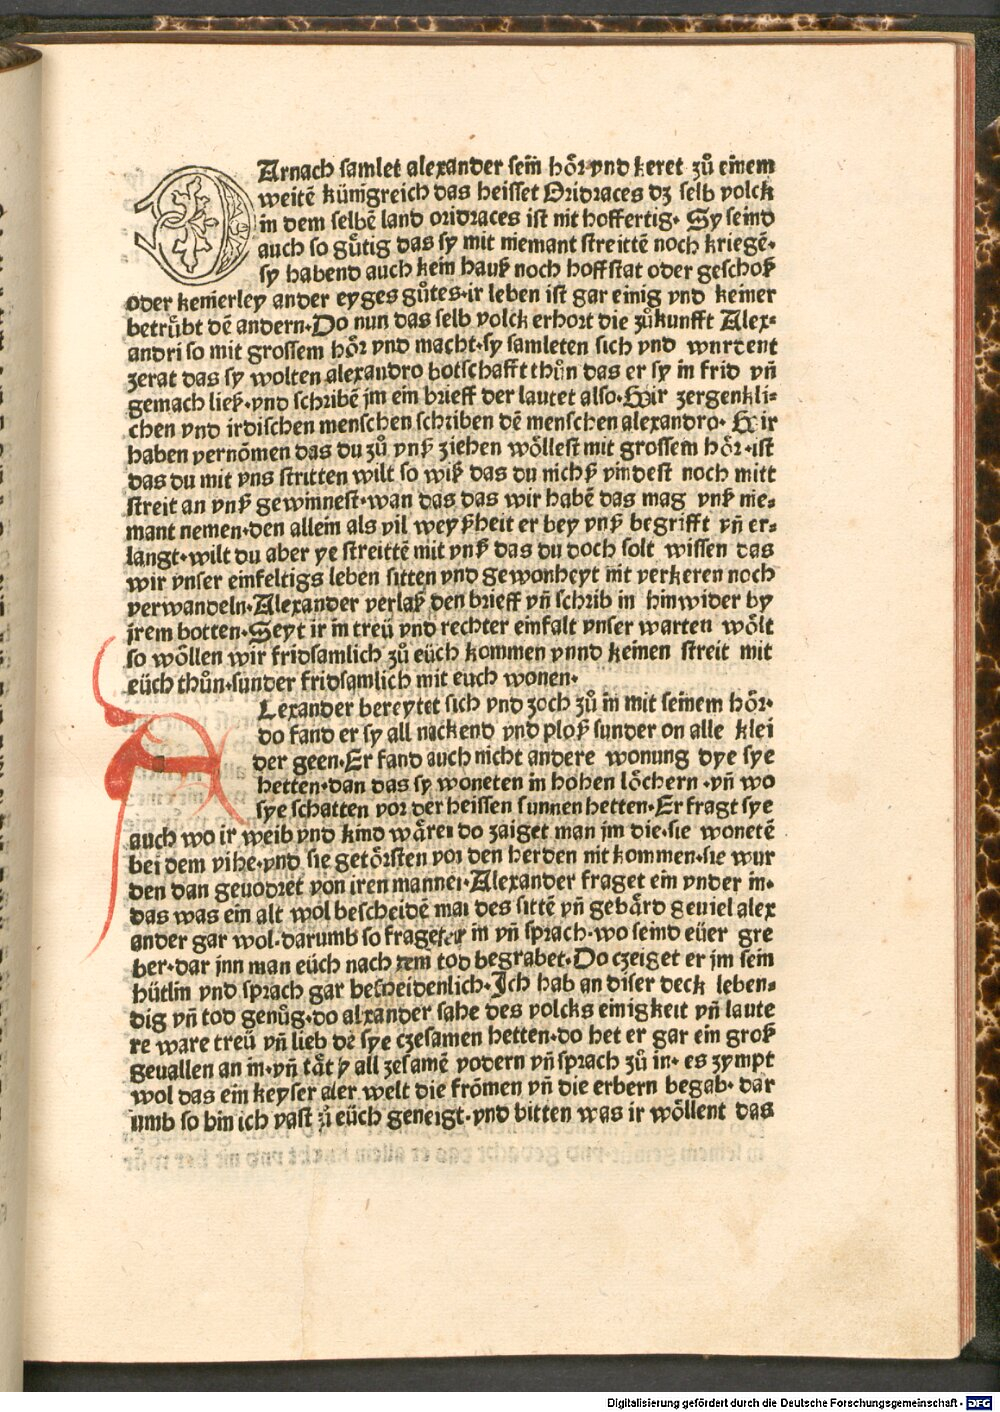 DArnach samlet alexander sein̄ hör vnd keret zů einem
weitē künigreich das heisset Oridraces dz selb volck
in dem selbē land oridraces ist nit hoffertig. Sy seind
auch so gůtig das sy mit niemant streittē noch kriegē.
sy habend auch kein hauß noch hoffstat oder geschoß
oder keinerley ander eyges gůtes.ir leben ist gar einig vnd keiner
betrůbt dē andern.Do nun das selb volck erhort die zůkunfft Alex⸗
andri so mit grossem hör vnd macht.sy samleten sich vnd wurdent
zerat das sy wolten alexandro botschafft thůn das er sy in frid vn̄
gemach ließ.vnd schribē jm ein brieff der lautet also.Wir zergenkli⸗
chen vnd irdischen menschen schriben dē menschen alexandro. Wir
haben vernōmen das du zů vnß ziehen wöllest mit grossem hör.ist
das du mit vns stritten wilt so wiß das du nichß vindest noch mitt
streit an vnß gewinnest.wan das das wir habē das mag vnß nie⸗
mant nemen.den allein als vil weyßheit er bey vnß begrifft vn̄ er⸗
langt.wilt du aber ye streittē mit vnß das du doch solt wissen das
wir vnser einfeltigs leben sitten vnd gewonheyt nit verkeren noch
verwandeln.Alexander verlaß den brieff vn̄ schrib in hinwider by
jrem botten.Seyt ir in treü vnd rechter einfalt vnser warten wölt
so wöllen wir fridsamlich zů eüch kommen vnnd keinen streit mit
eüch thůn.sunder fridsamlich mit euch wonen.
ALexander bereytet sich vnd zoch zů in mit seinem hör.
do fand er sy all nackend vnd ploß sunder on alle klei
der geen.Er fand auch nicht andere wonung dye sye
hetten.dan das sy woneten in hohen löchern .vn̄ wo
sye schatten vor der heissen sunnen hetten.Er fragt sye
auch wo ir weib vnd kind wären do zaiget man jm die.sie wonetē
bei dem vihe.vnd sie getörsten vor den herden nit kommen.sie wur
den dan geuodret von iren manner.Alexander fraget ein vnder in.
das was ein alt wol bescheidē man des sittē vn̄ gebärd geuiel alex
ander gar wol.darumb so frageter in vn̄ sprach.wo seind eüer gre
ber.dar jnn man eüch nach dem tod begrabet.Do czeiget er jm sein
hütlin vnd sprach gar bescheidenlich.Ich hab an diser deck leben⸗
dig vn̄ tod genůg.do alxander sahe des volcks einigkeit vn̄ laute
re ware treü vn̄ lieb dē sye czesamen hetten.do het er gar ein groß
geuallen an in.vn̄ tät ß all zesamē vodern vn̄ sprach zů in. es zympt
wol das ein keyser aler welt die frōmen vn̄ die erbern begab. dar
umb so bin ich vast zů eüch geneigt.vnd bitten was ir wöllent das
Digitalisierung gefördert durch die Deutsche Forschungsgemeinschaft - DFG